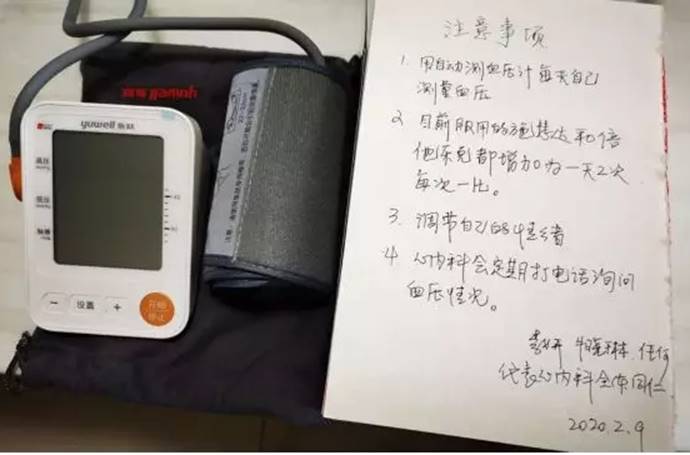 yuwell 鱼跃
高压
mmHg
低压
mmHg
脉搏
设置
开始
停止
yuwell 鱼跃
注意事项
1. 用自动测血压计每天自己
测量血压
2. 目前服用的施慧达和倍
他乐克都增加为一天2次
每次一片。
3. 调节自己的情绪
4. 心内科会定期打电话询问
血压情况。
代表心内科全体同仁
2020.2.9